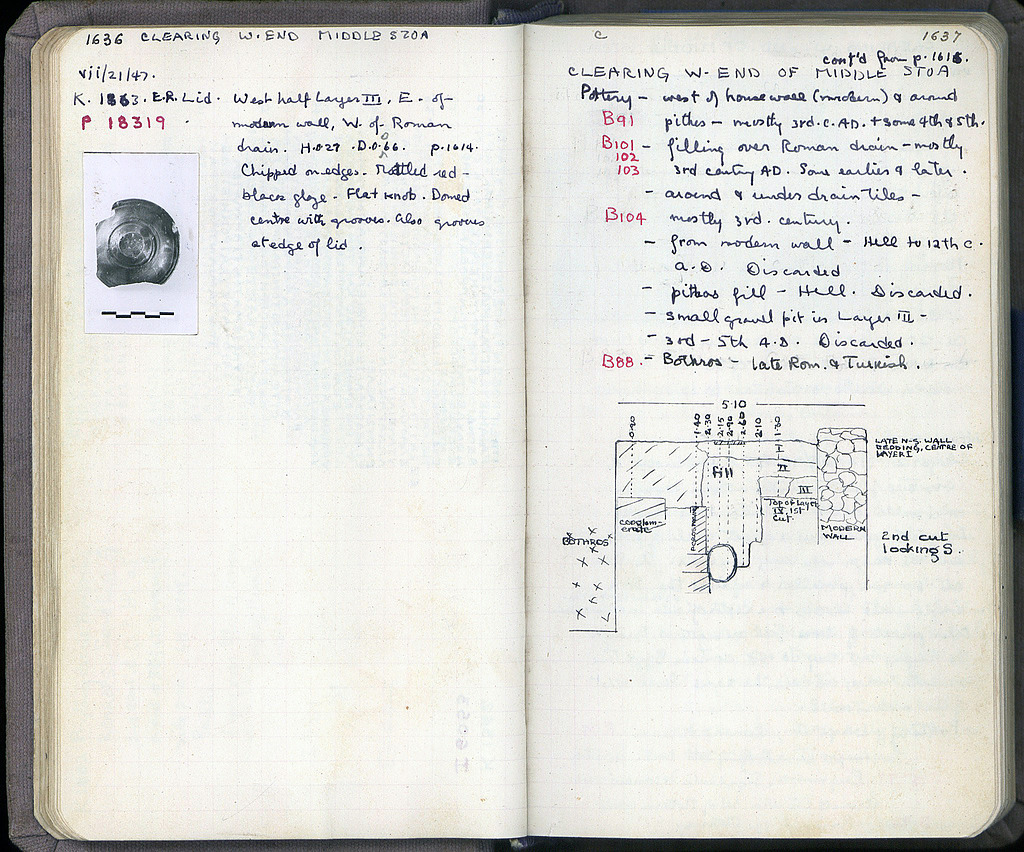 1636 CLEARING W. END MIDDLE STOA
vii/21/47.
K. 1863. E.R. Lid. West half Layer III, E. of
P 18319 modern wall, W. of Roman
drain. H.0.27. D.0.066. p.1614.
Chipped on edges. Mottled red-
black glaze. Flat knob. Domed
centre with grooves. Also grooves
at edge of lid.
C 1637
cont'd from p. 1615.
CLEARING W. END OF MIDDLE STOA
Pottery – west of house wall (modern) & around
B91 pithos – mostly 3rd. C. A.D. + some 4th & 5th.
B101 – filling over Roman drain – mostly
102
103 3rd century A.D. Some earlier & later.
– around & under drain tiles –
B104 mostly 3rd. century.
– from modern wall – Hell to 12th c.
A.D. Discarded
– pithos fill – Hell. Discarded.
– small gravel pit in Layer III –
– 3rd – 5th A.D. Discarded.
B88. – Bothros – late Rom. & Turkish.
5.10
0.20
1.40
2.30
2.15
2.90
2.60
2.10
1.30
I
II
III
Fill
LATE N-S. WALL
BEDDING, CENTRE OF
LAYER I
Top of Layer
IV. 1st
Cut.
conglom-
erate
BOTHROS
MODERN
WALL
2nd cut
looking S.